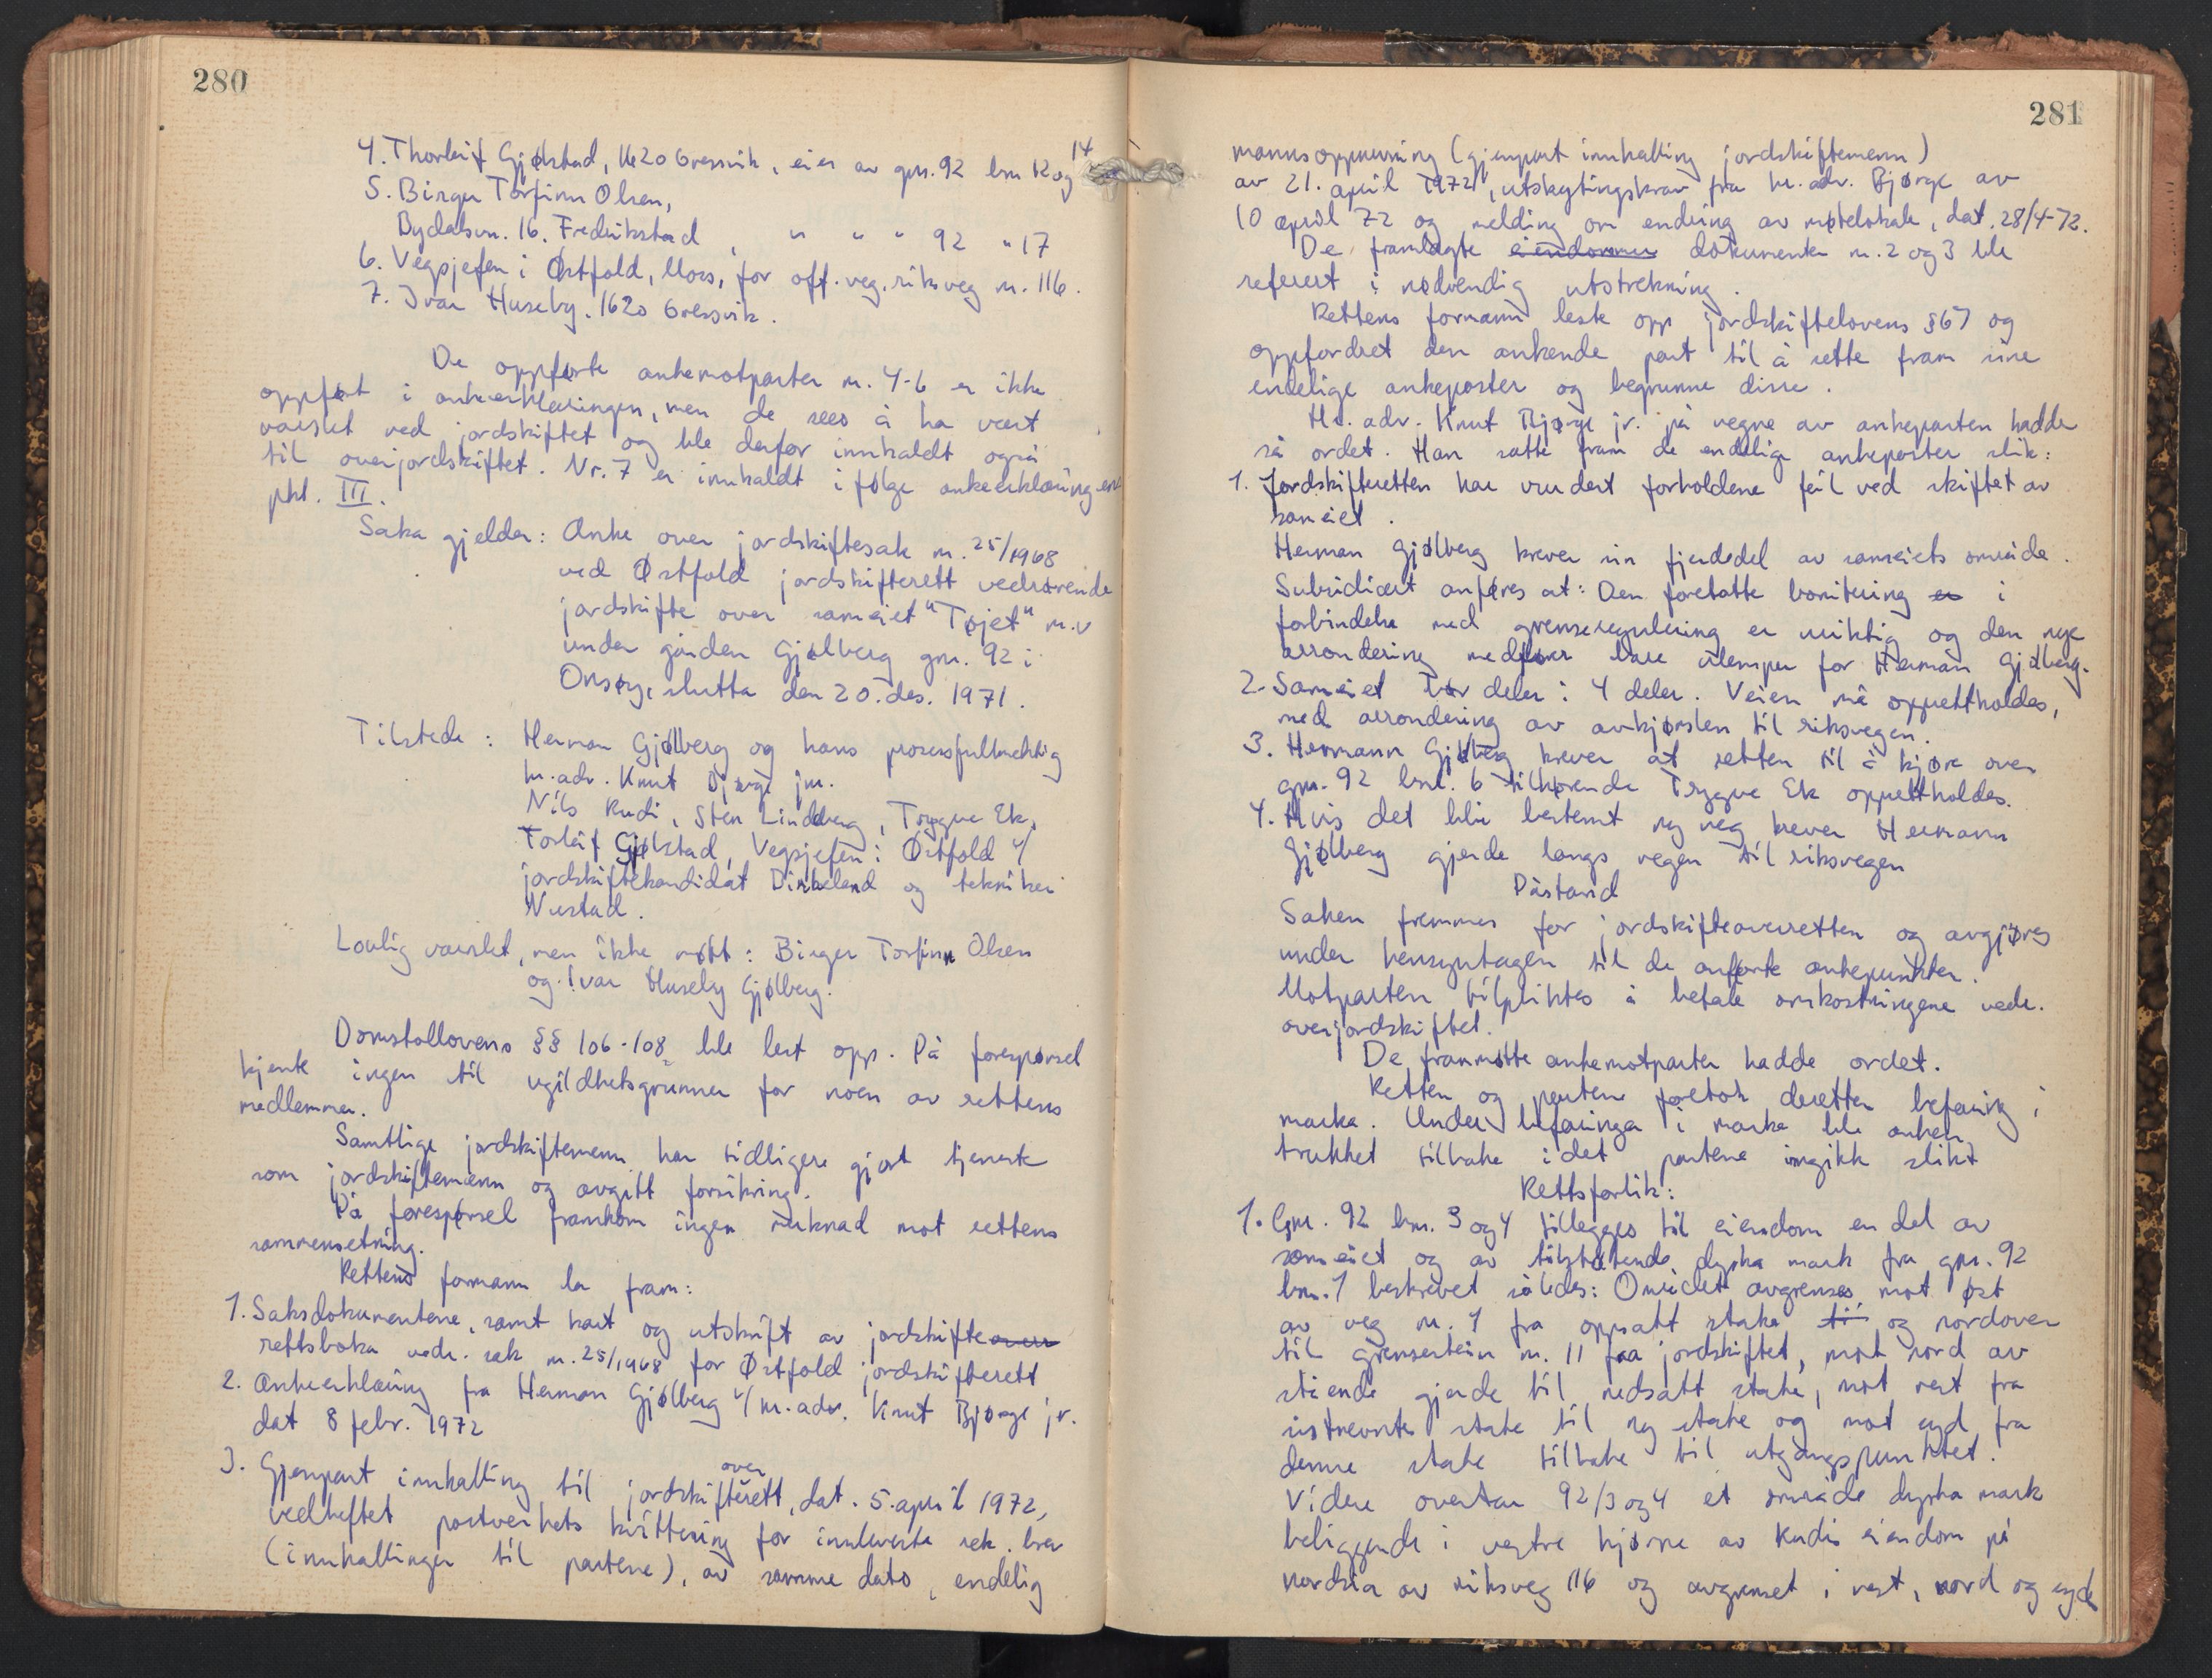 280
4. Thorleif Gjølstad, 1620 Gressvik, eier av gnr. 92 bnr 12 og 14
5. Birger Torfinn Olsen,
Bydalsvn. 16. Fredrikstad, " " " 92 " 17
6. Vegsjefen i Østfold, Moss, for off. veg. riksveg nr. 116.
7. Ivar Huseby. 1620 Gressvik.
De oppførte ankemotparter nr. 4-6 er ikke
oppført i ankeerklæringen, men de sees å ha vært
varslet ved jordskiftet og ble derfor innkaldt også
til overjordskiftet. Nr. 7 er innkaldt i følge ankeerklæringen
pkt. III.
Saka gjelder: Anke over jordskiftesak nr. 25/1968
ved Østfold jordskifterett vedrørende
jordskifte over sameiet "Tøjet" m.v
under gården Gjølberg gnr. 92 i
Onsøy, slutta den 20. des. 1971.
Tilstede: Herman Gjølberg og hans prosessfullmektig
hr. adv. Knut Bjørge jnr.
Nils Rudi, Sten Lindberg, Trygve Ek,
Torleif Gjølstad, Vegsjefen i Østfold v/
jordskiftekandidat Birkeland og tekniker
Nestad.
Lovlig varslet, men ikke møtt: Birger Torfinn Olsen
og Ivar Huseby Gjølberg.
Domstollovens §§ 106-108 ble lest opp. På forespørsel
kjente ingen til ugildhetsgrunner for noen av rettens
medlemmer.
Samtlige jordskiftemenn har tidligere gjort tjeneste
som jordskiftemenn og avgitt forsikring.
På forespørsel framkom ingen merknad mot rettens
sammensetning.
Rettens formann la fram:
1. Saksdokumentene, samt kart og utskrift av jordskifteover
rettsboka vedr. sak nr. 25/1968 for Østfold jordskifterett
2. Ankeerklæring fra Herman Gjølberg v/ hr. adv. Knut Bjørge jr.
dat 8 febr. 1972
3. Gjenpart innkalling til jordskifteoverrett, dat. 5. april 1972,
vedheftet postverkets kvittering for innleverte rek. brev
(innkallinger til partene), av samme dato, endelig
281
mannsoppnevning (gjenpart innkalling jordskiftemenn)
av 21. april 1972, utskytingskrav fra hr. adv. Bjørge av
10 april 72 og melding om endring av møtelokale, dat. 28/4-72.
De framlagte eiendommer dokumenter nr. 2 og 3 ble
referert i nødvendig utstrekning.
Rettens formann leste opp jordskiftelovens §67 og
oppfordret den ankende part til å sette fram sine
endelige ankeposter og begrunne disse.
Hr. adv. Knut Bjørge jr. på vegne av ankeparten hadde
så ordet. Han satte fram de endelige ankeposter slik:
1. Jordskifteretten har vurdert forholdene feil ved skiftet av
sameiet.
Herman Gjølberg krever sin fjerdedel av sameiets område.
Subsidiært anføres at: Den foretatte bonitering er i
forbindelse med grenseregulering er uriktig og den nye
arrondering medfører bare ulemper for Herman Gjølberg.
2. Sameiet bør deles i 4 deler. Veien må opprettholdes,
med arrondering av avkjørslen til riksvegen.
3. Hermann Gjølberg krever at retten til å kjøre over
gnr. 92 bnr. 6 tilhørende Trygve Ek opprettholdes.
4. Hvis det blir bestemt ny veg krever Hermann
Gjølberg gjerde langs vegen til riksvegen
Påstand
Saken fremmes for jordskifteoverretten og avgjøres
under hensyntagen til de anførte ankepunkter.
Motparten tilpliktes å betale omkostningene vedr.
overjordskiftet.
De frammøtte ankemotparter hadde ordet.
Retten og partene foretok deretter befaring i
marka. Under befaringa i marka ble anken
trukket tilbake idet partene inngikk slikt
Rettsforlik:
1. Gnr. 92 bnr. 3 og 4 tillegges til eiendom en del av
sameiet og av tilstøtende dyrka mark fra gnr. 92
bnr. 1 beskrevet således: Området avgrenses mot øst
av veg nr. 1 fra oppsatt stake ti og nordover
til grensestein nr. 11 fra jordskiftet, mot nord av
stående gjerde til nedsatt stake, mot vest fra
sistnevnte stake til ny stake og mot syd fra
denne stake tilbake til utgangspunktet.
Videre overtar 92/3 og 4 et område dyrka mark
beliggende i vestre hjørne av Rudis eiendom på
nordsia av riksveg 116 og avgrenset i vest, nord og syd